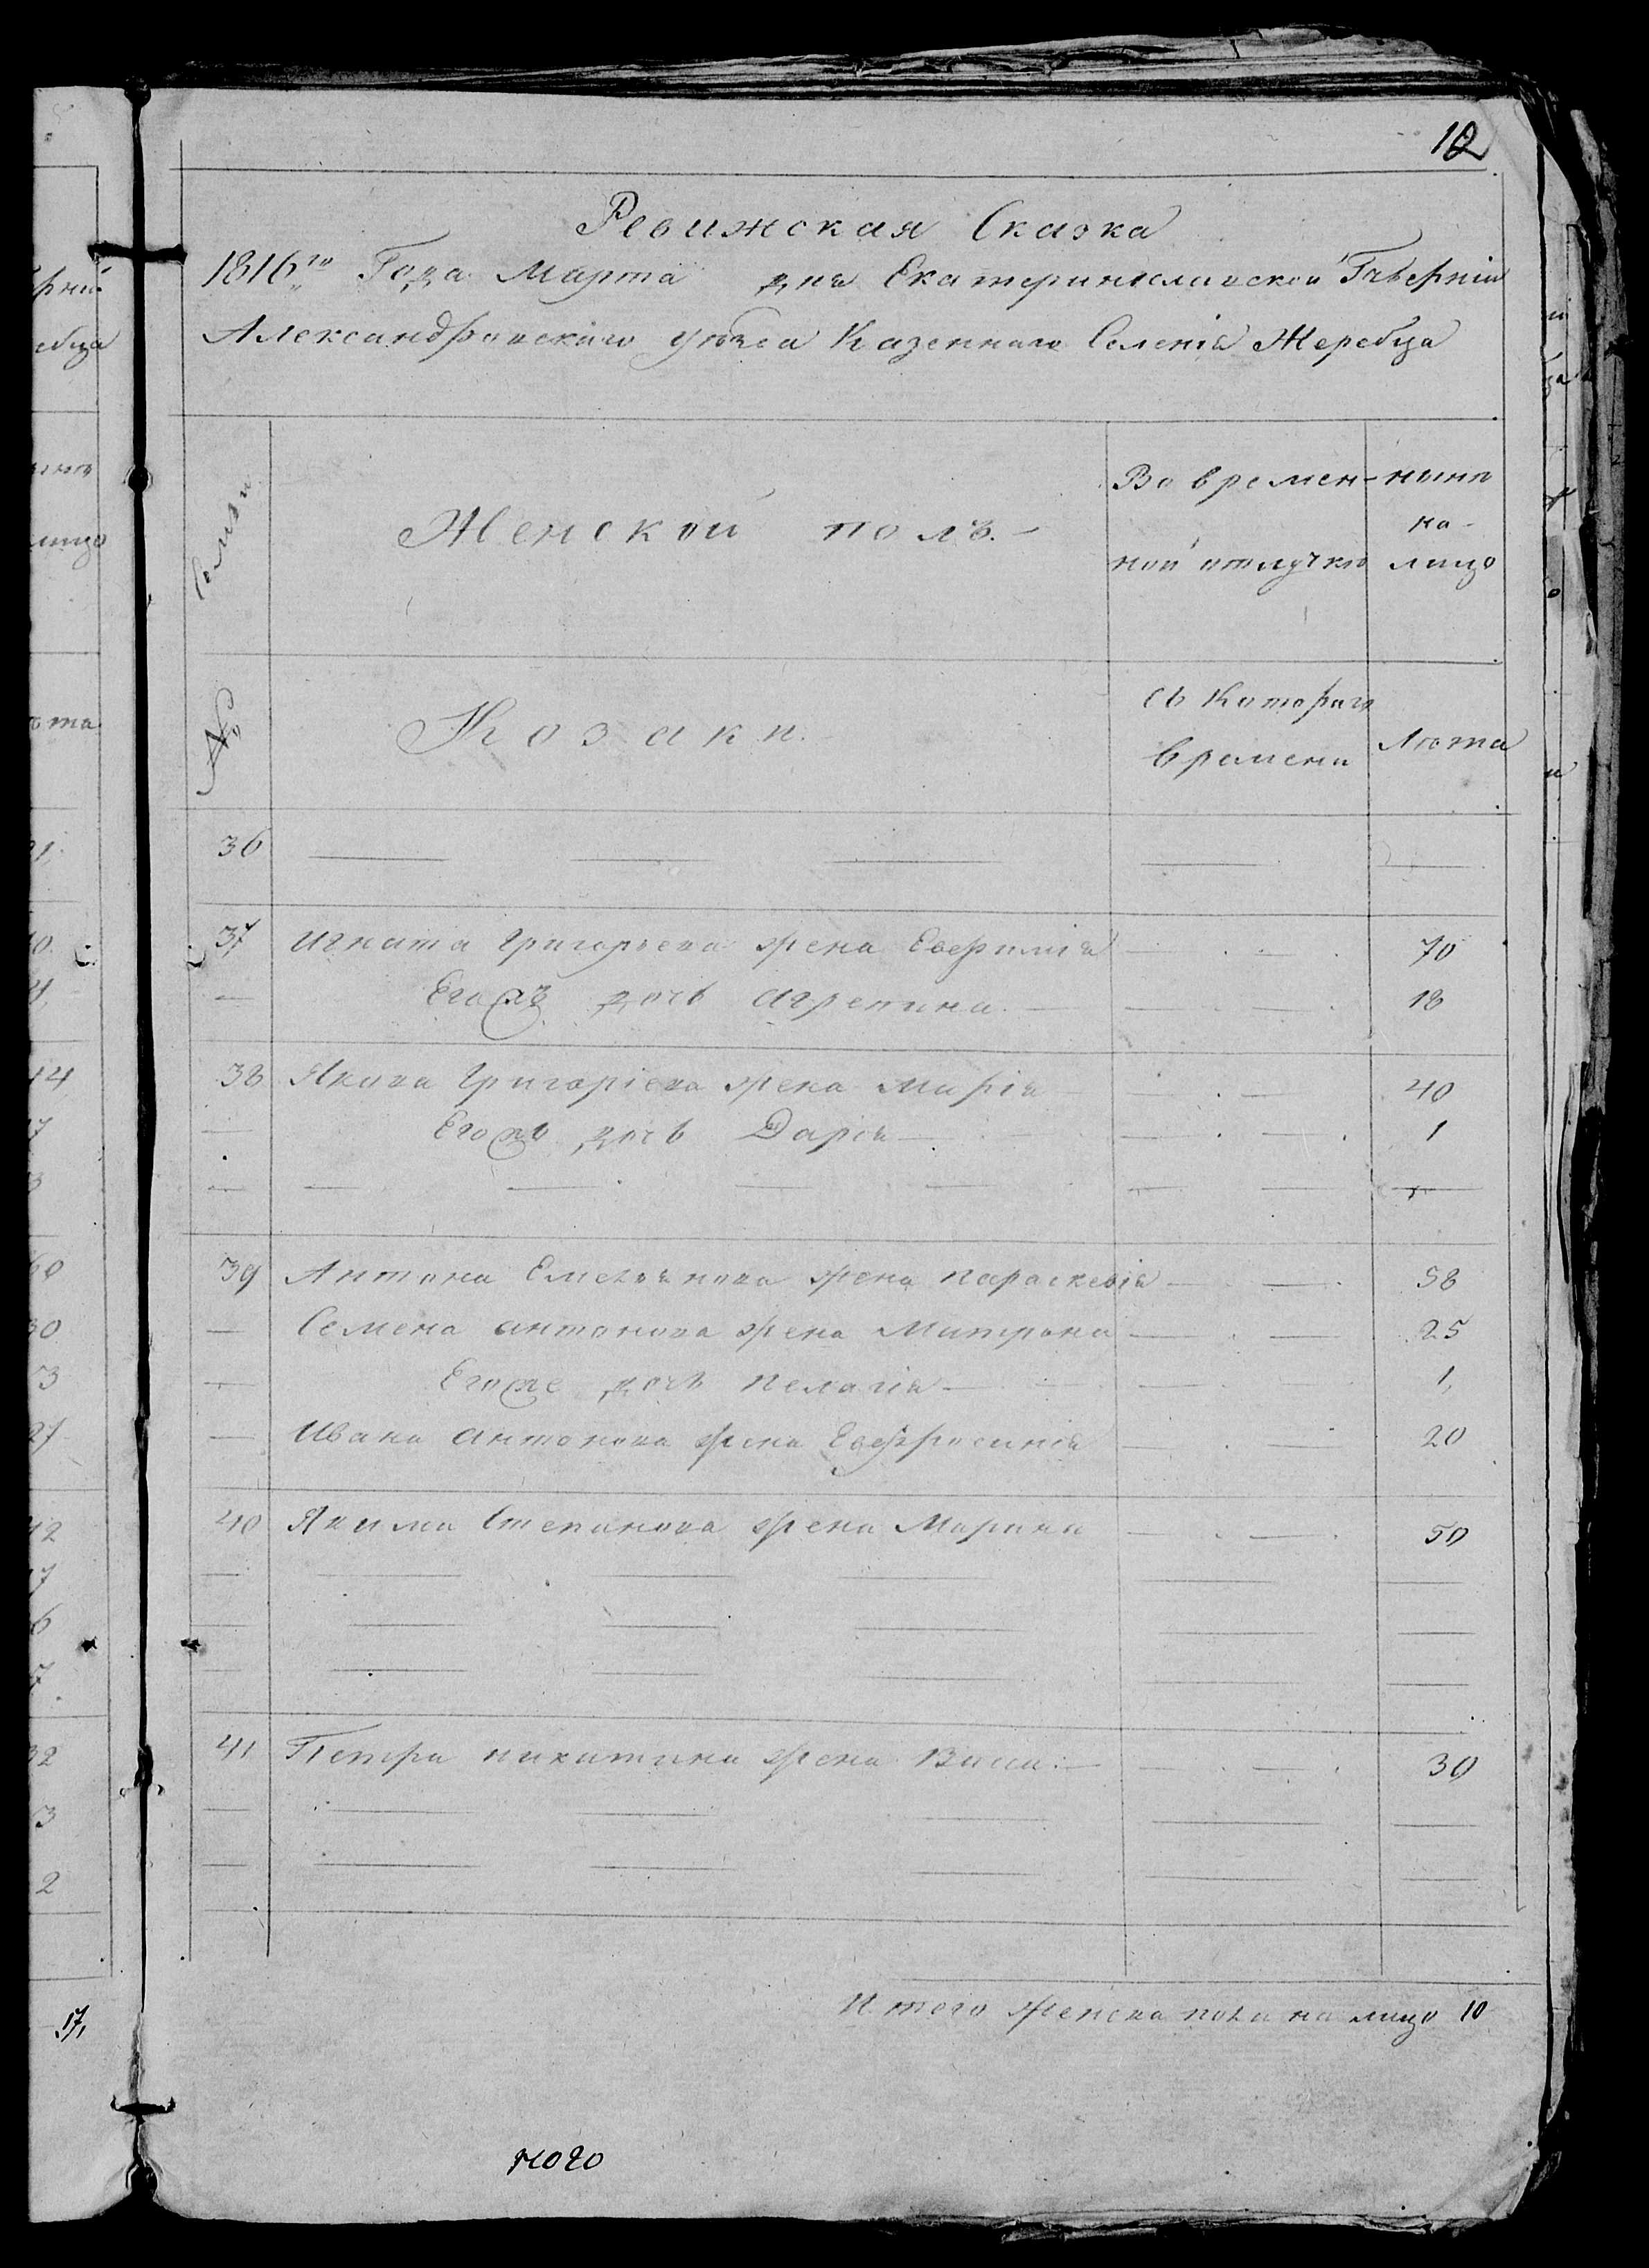 12
Ревижская Сказка
1816го Года Марта дня Екатеринославской Губерніи
Александровскаго уезда Казеннаго Селенія Жеребца
Семьи
Женской полъ.
Во времен-
ной отлучке
ныне
на-
лицо
№
Козаки.
съ Котораго
времени
Лѣта
36
37 Игната Григорьева жена Евфимія 70
Егожъ дочь Агрепина 18
38 Якова Григоріева жена Марія 40
Егожъ дочь Дарія 1
39 Антона Емельянова жена Параскевія 58
Семена Антонова жена Матрона 25
Егоже дочь Пелагія 1
Ивана Антонова жена Евфросинія 20
40 Якима Степанова жена Марина 50
41 Петра Никитина жена Васса 30
Итого женска пола на лицо 10